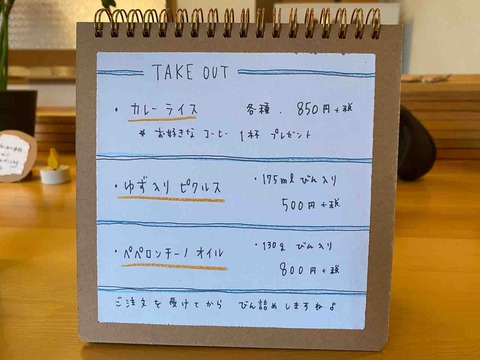 TAKE OUT
・カレーライス 各種. 850円+税
* お好きな コーヒー 1杯 プレゼント
・ゆず入り ピクルス ・175ml びん入り
500円+税
・ペペロンチーノ オイル ・130g びん入り
800円+税
ご注文を受けてから びん詰めしますねよ